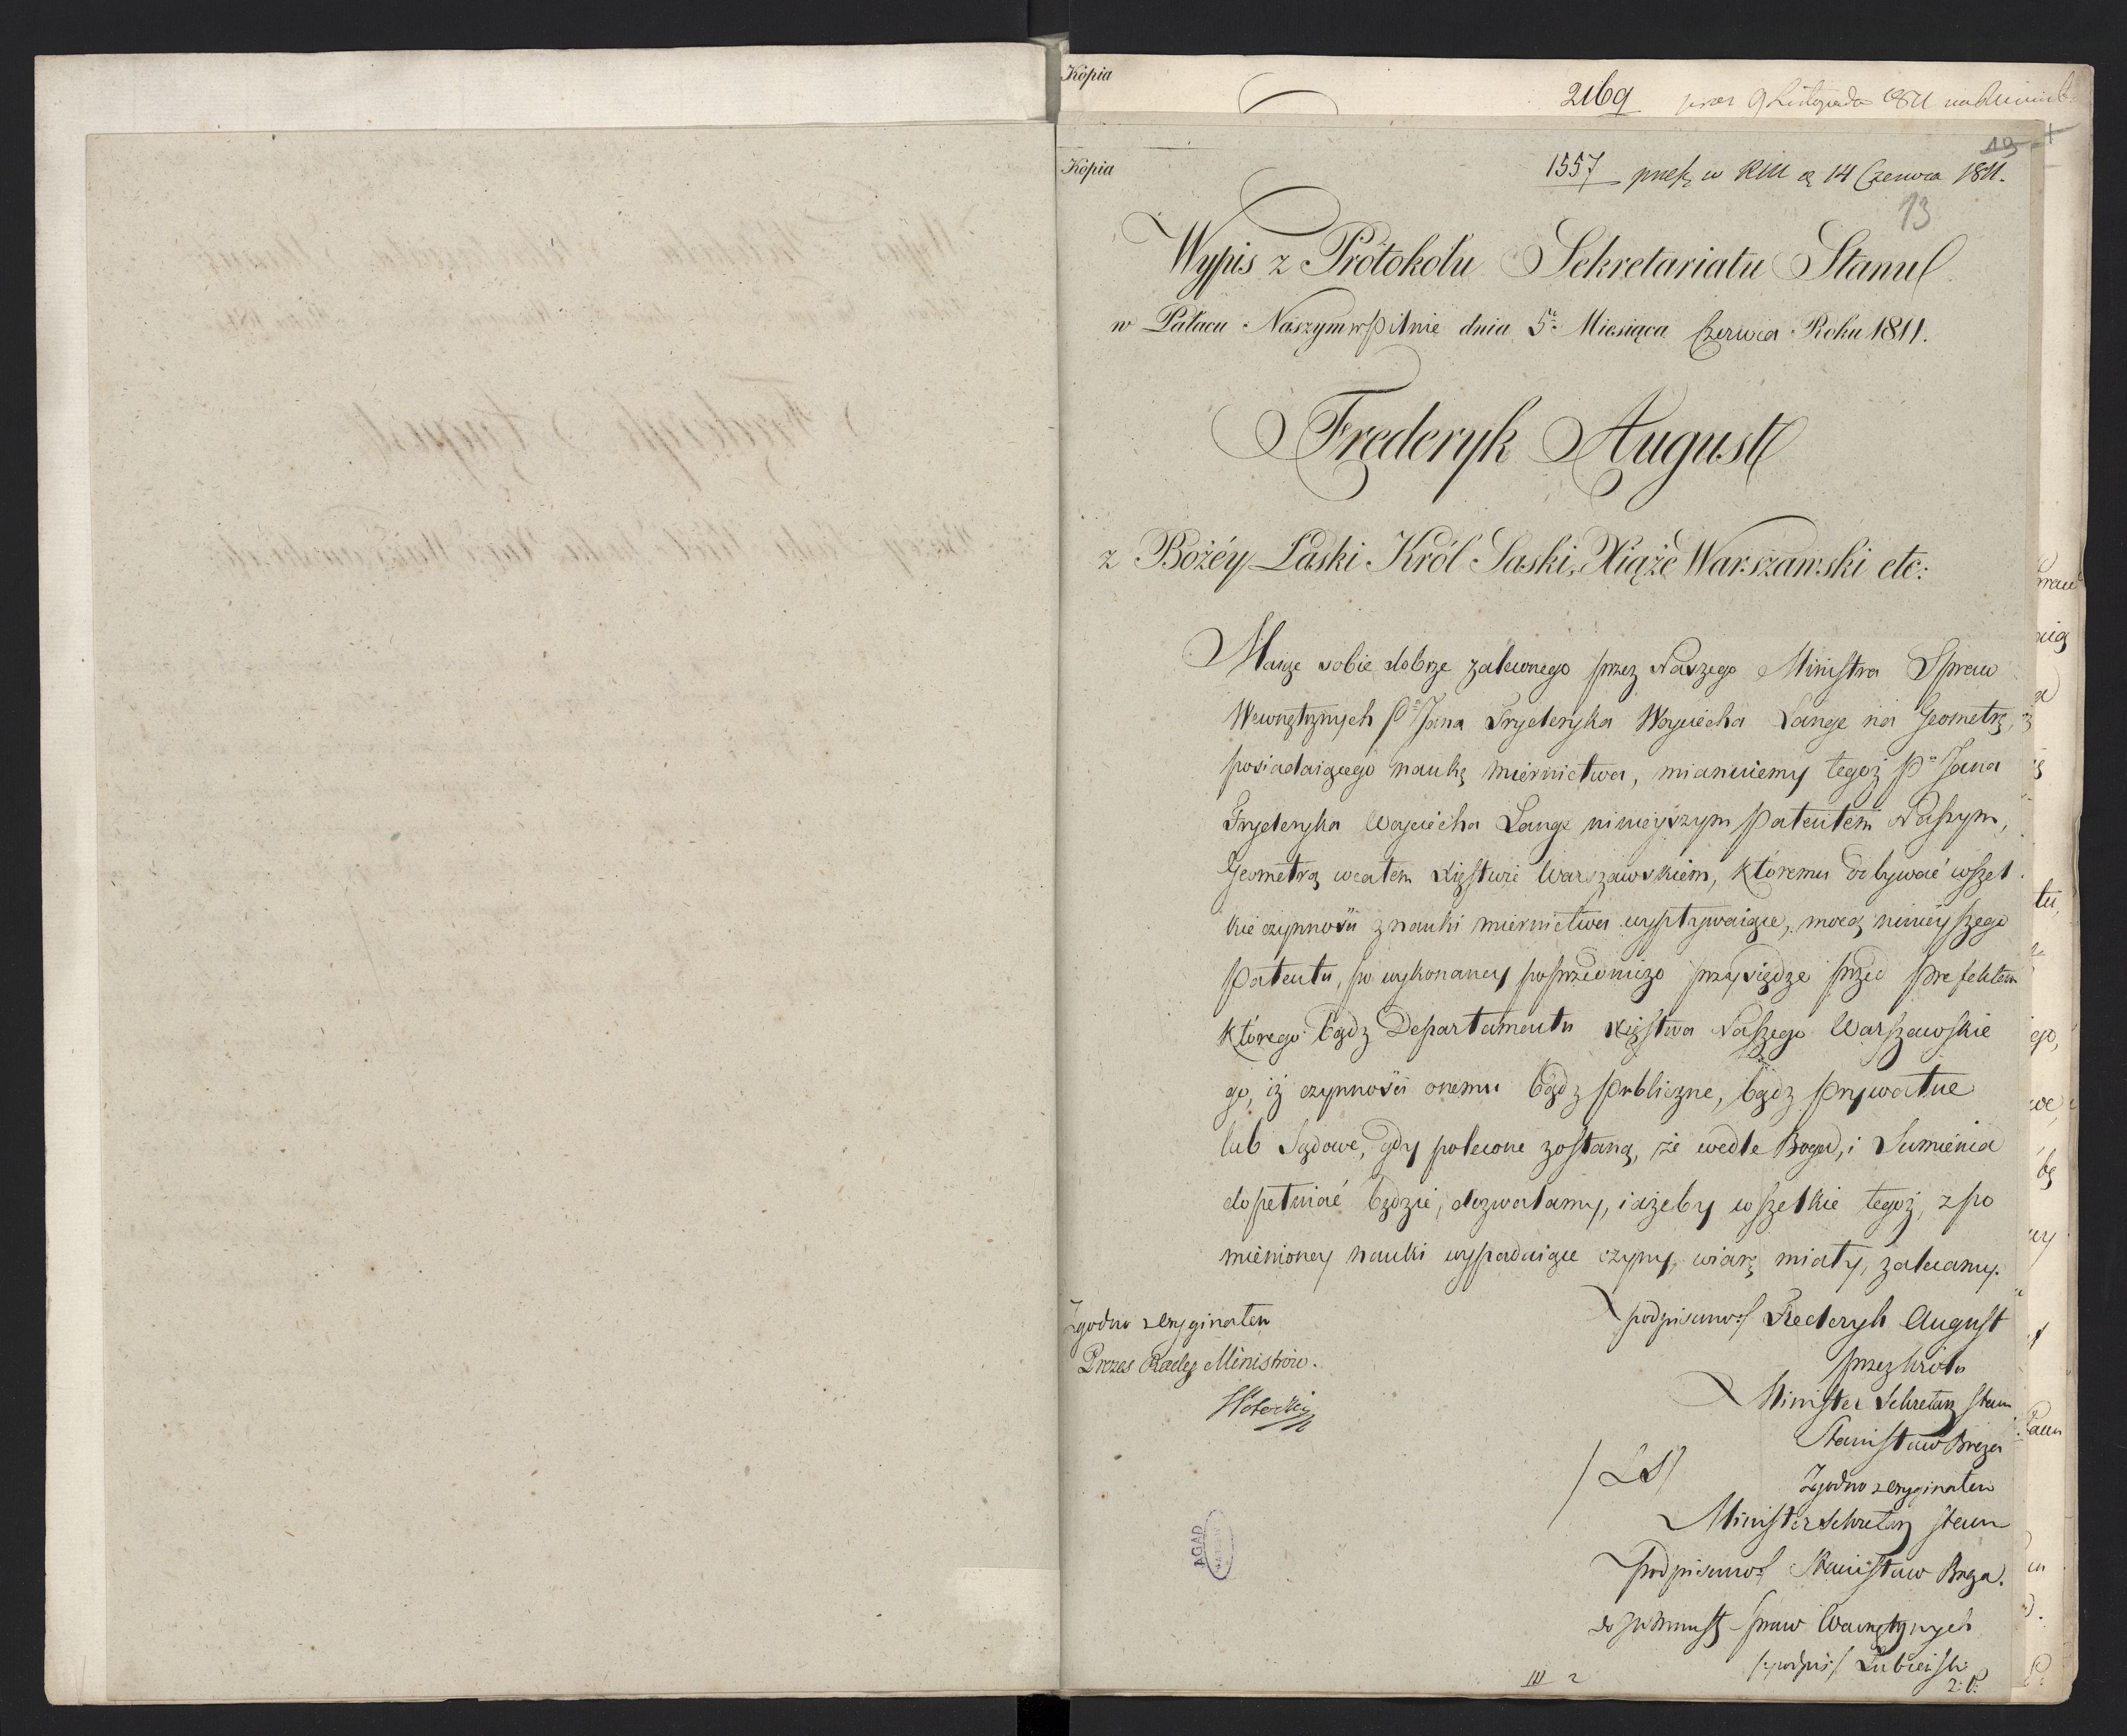 Kópia
2169 prez 9 Listopada 1811
Kópia
19
1557 presz w RM d 14 Czerwca 1811.
13
Wypis z Prótokółu Sekretariatu Stanu
w Pałacu Naszym w Pilnie dnia 5. Miesiąca Czerwca Roku 1811.
Frederyk August
z Bożéy Łaski Król Saski, Xiąże Warszawski etc:
Maiąc sobie dobrze zaleconego przez Naszego Ministra Spraw
Wewnętrznych Pa Jana Fryderyka Woyciecha Lange na Geometrę,
posiadaiącego naukę miernictwa, mianuiemy tegoż Pa Jana
Fryderyka Woyciecha Lange ninieyszym Patentem Naszym,
Geometrą wcałem Xięstwie Warszawskiem, któremu odbywać wszel
kie czynności z nauki miernictwa wypływaiące, mocą ninieyszego
Patentu, po wykonaney poprzedniczo przysiędze przed Prefektem
którego bądz Departamentu Xięstwa Naszego Warszawskie
go, iż czynności onemu bądz publiczne, bądz prywatne
lub Sądowe, gdy polecone zostaną, że wedle Boga, i Sumienia
dopełniać będzie, dozwalamy, i ażeby wszelkie tegoż, z po
mienioney nauki wypadaiące czyny, wiarę miały, zalecamy.
Zgodno z Oryginałem
Prezes Rady Ministrów.
podpisano Frederyk August
przez Króla
Minister Sekretarz Stanu
Stanisław Breza
/LS/
Zgodno z Oryginałem
Minister Sekretarz Stanu
podpisano Stanisław Breza.
do Minist Spraw Wewnętrznych
/podpis/ Łubieński
III 2
AGAD